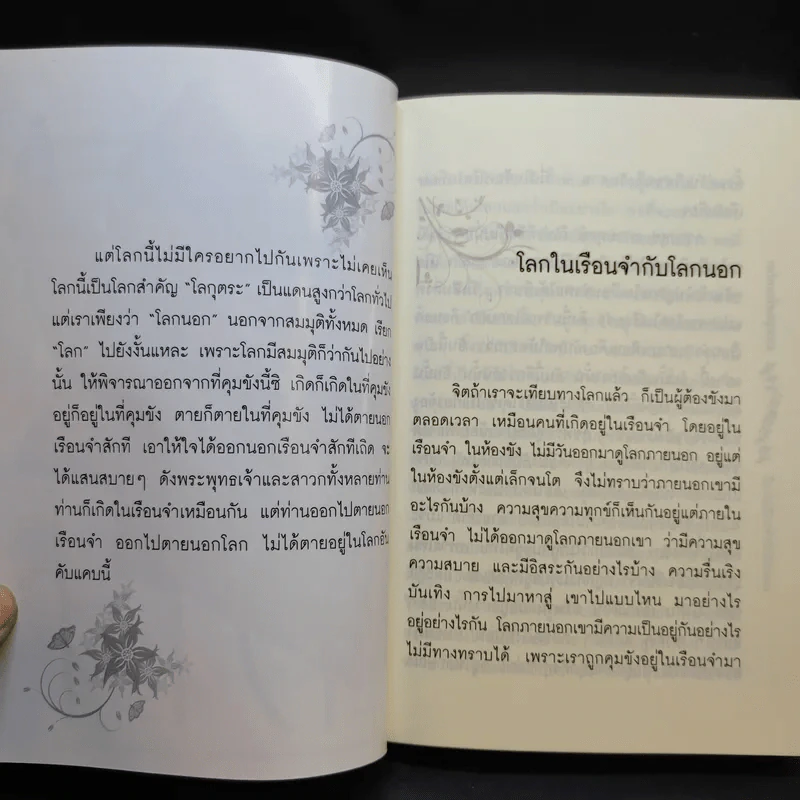 แต่โลกนี้ไม่มีใครอยากไปกันเพราะไม่เคยเห็น
โลกนี้เป็นโลกสำคัญ “โลกุตระ” เป็นแดนสูงกว่าโลกทั่วไป
แต่เราเพียงว่า “โลกนอก” นอกจากสมมุติทั้งหมด เรียก
“โลก” ไปยังงั้นแหละ เพราะโลกมีสมมุติก็ว่ากันไปอย่าง
นั้น ให้พิจารณาออกจากที่คุมขังนี้ซิ เกิดก็เกิดในที่คุมขัง
อยู่ก็อยู่ในที่คุมขัง ตายก็ตายในที่คุมขัง ไม่ได้ตายนอก
เรือนจำสักที เอาให้ใจได้ออกนอกเรือนจำสักทีเถิด จะ
ได้แสนสบายๆ ดังพระพุทธเจ้าและสาวกทั้งหลายท่าน
ท่านก็เกิดในเรือนจำเหมือนกัน แต่ท่านออกไปตายนอก
เรือนจำ ออกไปตายนอกโลก ไม่ได้ตายอยู่ในโลกอัน
คับแคบนี้
โลกในเรือนจำกับโลกนอก
จิตถ้าเราจะเทียบทางโลกแล้ว ก็เป็นผู้ต้องขังมา
ตลอดเวลา เหมือนคนที่เกิดอยู่ในเรือนจำ โดยอยู่ใน
เรือนจำ ในห้องขัง ไม่มีวันออกมาดูโลกภายนอก อยู่แต่
ในห้องขังตั้งแต่เล็กจนโต จึงไม่ทราบว่าภายนอกเขามี
อะไรกันบ้าง ความสุขความทุกข์ก็เห็นกันอยู่แต่ภายใน
เรือนจำ ไม่ได้ออกมาดูโลกภายนอกเขา ว่ามีความสุข
ความสบาย และมีอิสระกันอย่างไรบ้าง ความรื่นเริง
บันเทิง การไปมาหาสู่ เขาไปแบบไหน มาอย่างไร
อยู่อย่างไรกัน โลกภายนอกเขามีความเป็นอยู่กันอย่างไร
ไม่มีทางทราบได้ เพราะเราถูกคุมขังอยู่ในเรือนจำมา